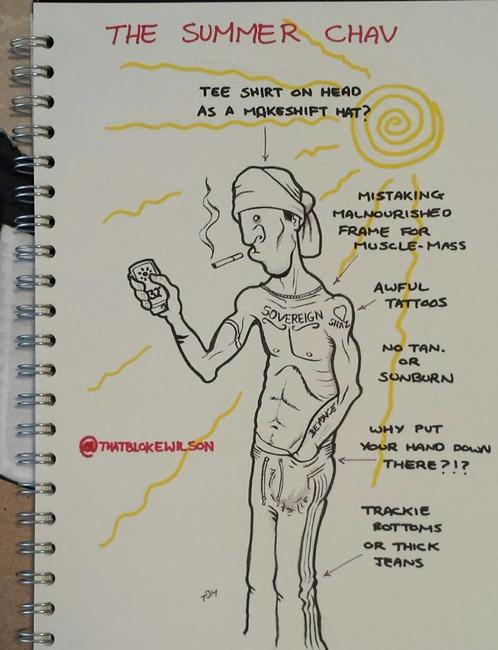 THE SUMMER CHAV
TEE SHIRT ON HEAD
AS A MAKESHIFT HAT?
MISTAKING
MALNOURISHED
FRAME FOR
MUSCLE-MASS
AWFUL
TATTOOS
SOVEREIGN
SHAZ
NO TAN.
OR
SUNBURN
BEYONCE
@THATBLOKEWILSON
WHY PUT
YOUR HAND DOWN
THERE?!?
TRACKIE
BOTTOMS
OR THICK
JEANS
TOM